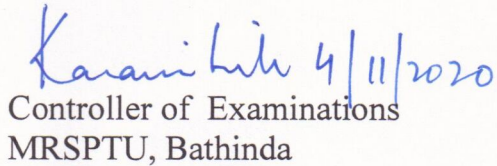 4/11/2020
Controller of Examinations
MRSPTU, Bathinda